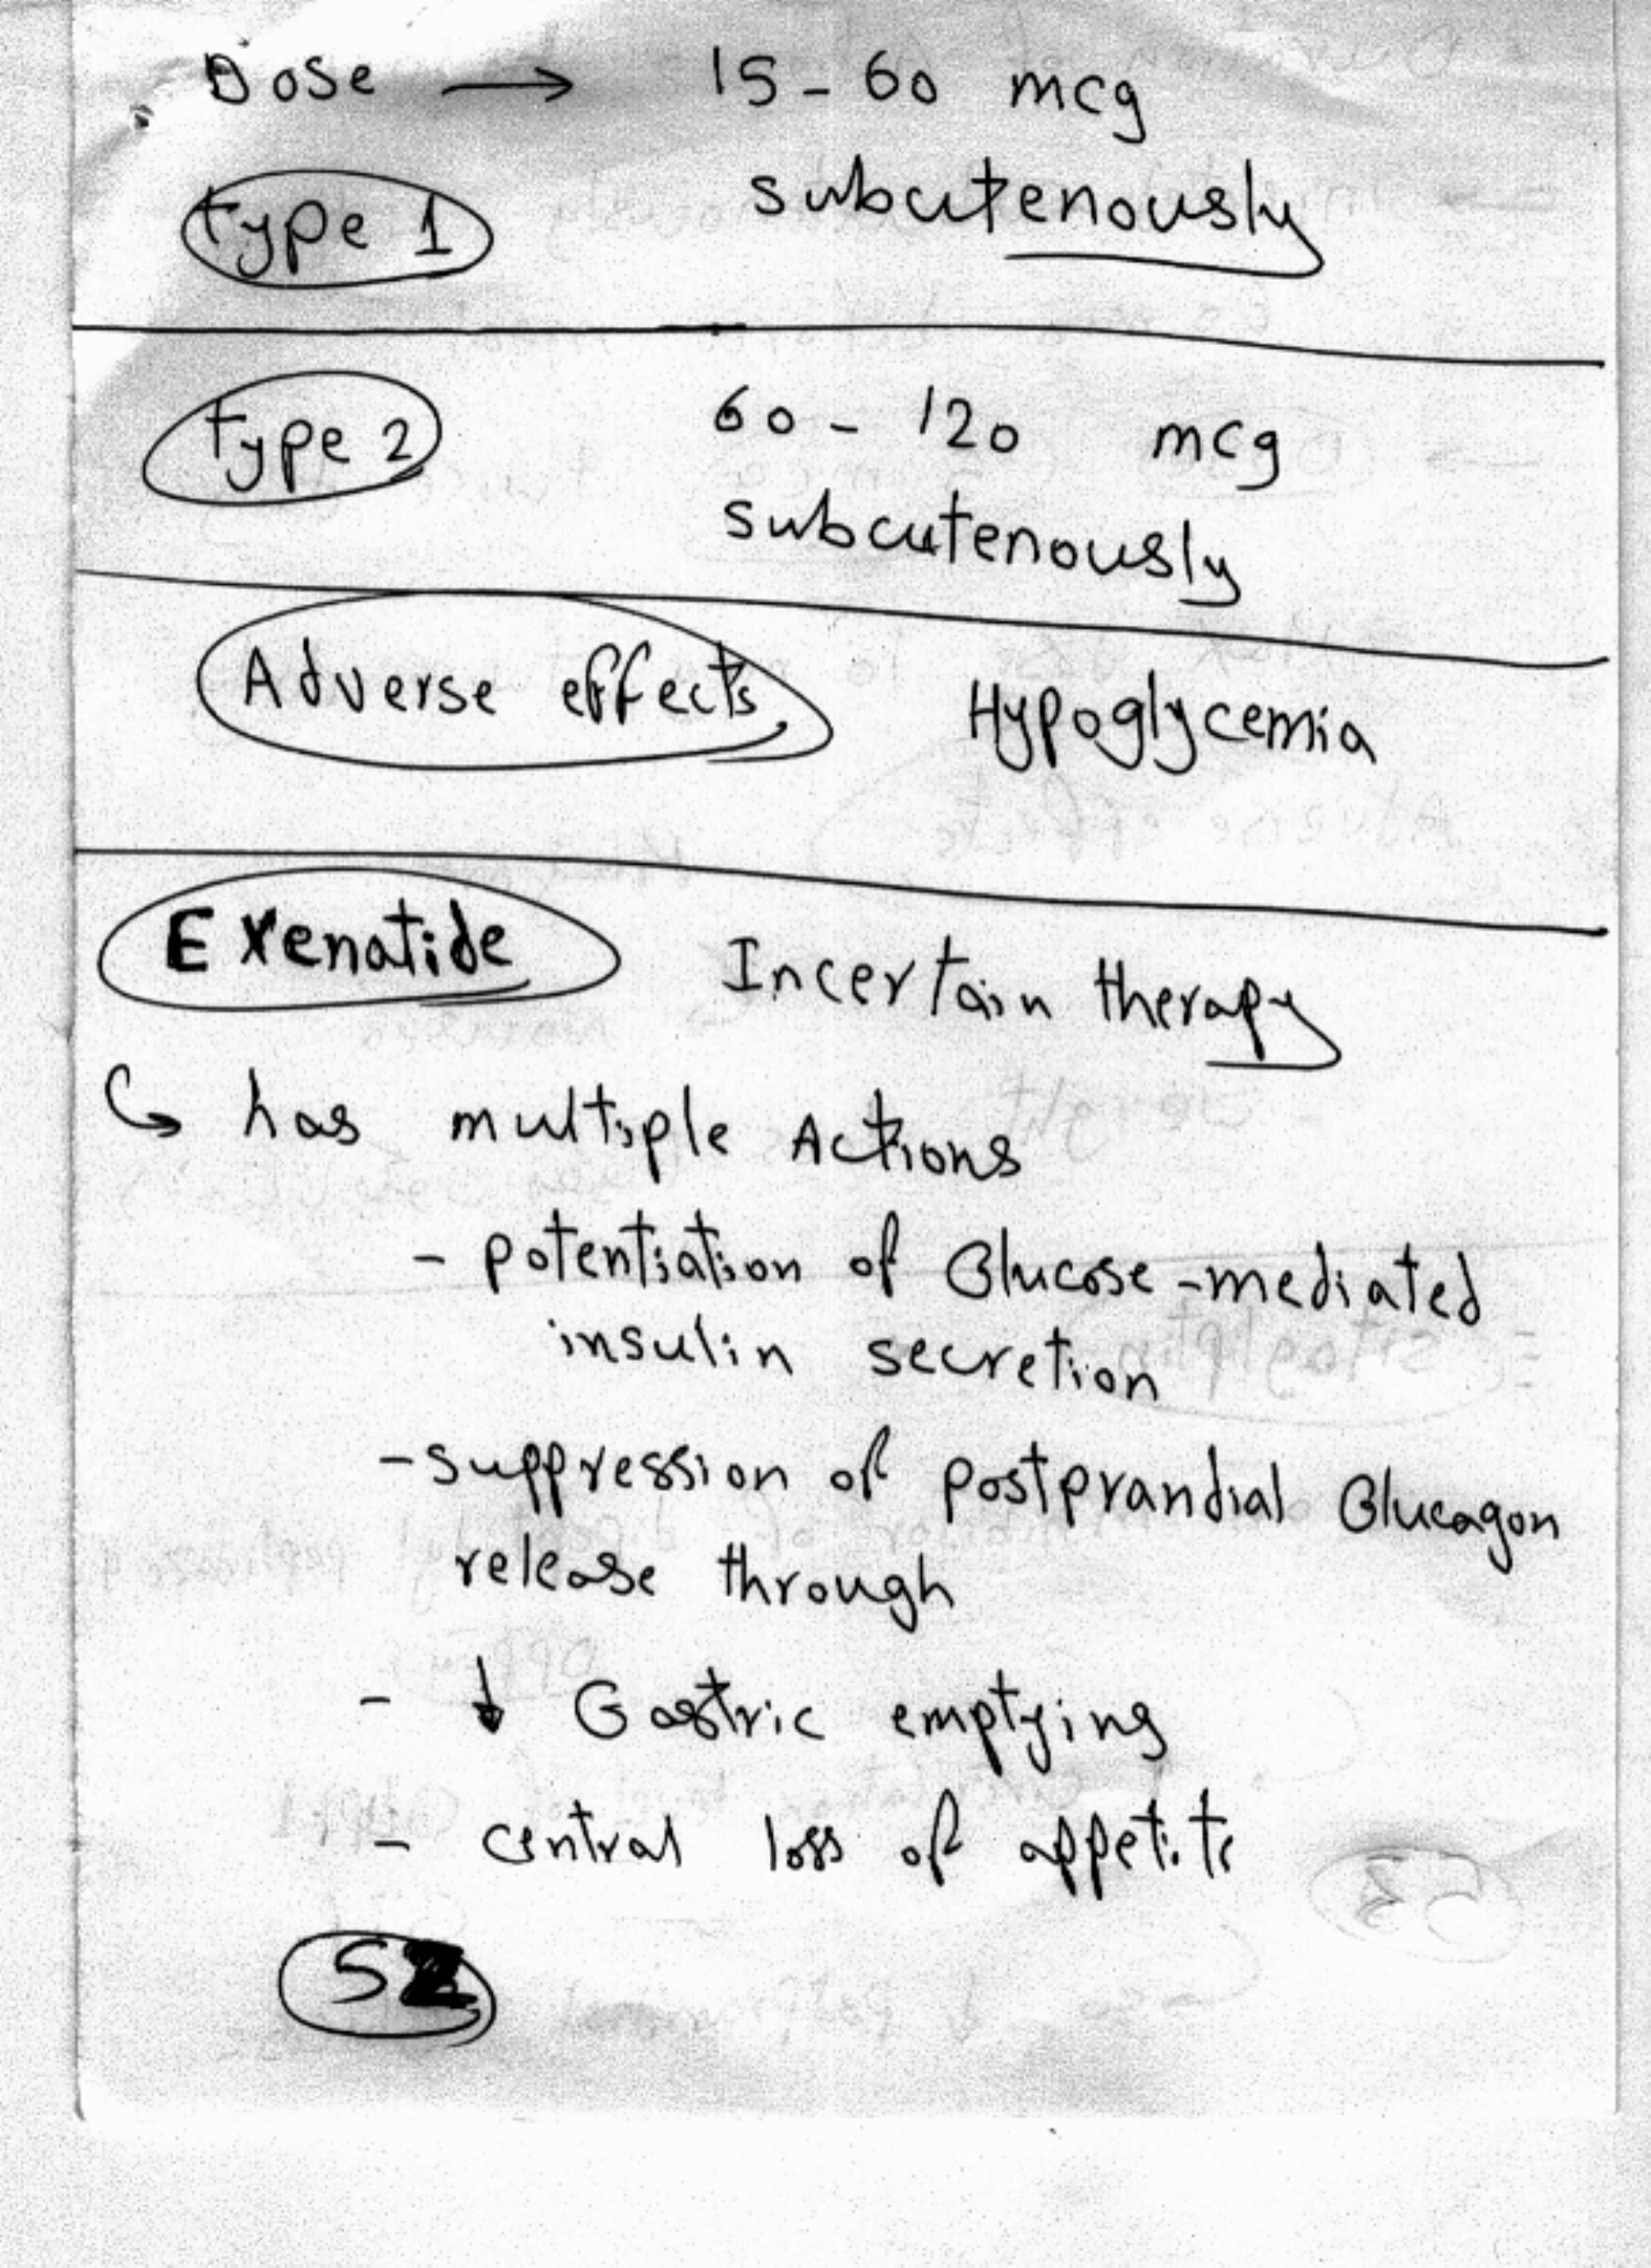 Dose → 15 - 60 mcg
type 1 subcutenously
type 2 60 - 120 mcg
subcutenously
Adverse effects Hypoglycemia
Exenatide Incertain therapy
↳ has multiple Actions
- potentiation of Glucose-mediated
insulin secretion
- suppression of postprandial Glucagon
release through
- ↓ Gastric emptying
- central loss of appetite
52